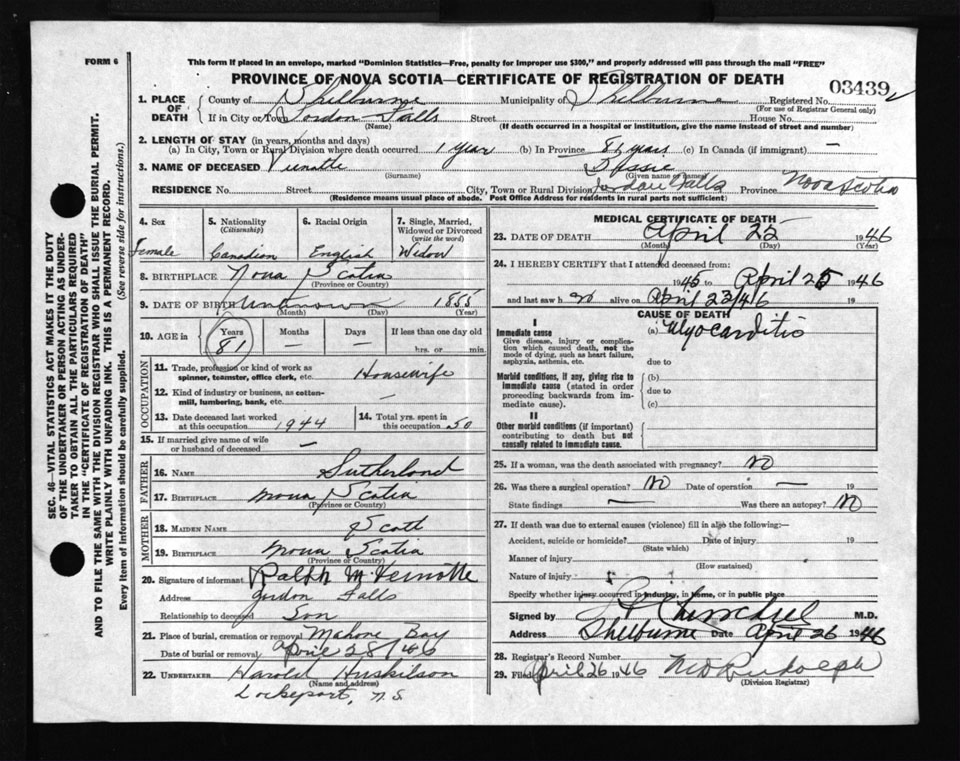 FORM 6
This form if placed in an envelope, marked "Dominion Statistics—Free, penalty for improper use $300," and properly addressed will pass through the mail "FREE"
PROVINCE OF NOVA SCOTIA—CERTIFICATE OF REGISTRATION OF DEATH
03439
1. PLACE OF DEATH
County of Shelburne Municipality of Shelburne Registered No.
(For use of Registrar General only)
If in City or Town Jordon Falls Street House No.
(Name) (If death occurred in a hospital or institution, give the name instead of street and number)
2. LENGTH OF STAY (in years, months and days)
(a) In City, Town or Rural Division where death occurred 1 year (b) In Province 81 years (c) In Canada (if immigrant) —
3. NAME OF DECEASED Bessie
(Surname) (Given name or names)
RESIDENCE No. Street City, Town or Rural Division Jordan Falls Province Nova Scotia
(Residence means usual place of abode. Post Office Address for residents in rural parts not sufficient)
SEC. 46—VITAL STATISTICS ACT MAKES IT THE DUTY OF THE UNDERTAKER OR PERSON ACTING AS UNDERTAKER TO OBTAIN ALL THE PARTICULARS REQUIRED IN THE "CERTIFICATE OF REGISTRATION OF DEATH" AND TO FILE THE SAME WITH THE DIVISION REGISTRAR WHO SHALL ISSUE THE BURIAL PERMIT.
WRITE PLAINLY WITH UNFADING INK. THIS IS A PERMANENT RECORD.
Every item of information should be carefully supplied. (See reverse side for instructions.)
4. Sex
Female
5. Nationality
(Citizenship)
Canadian
6. Racial Origin
English
7. Single, Married, Widowed or Divorced
(write the word)
Widow
8. BIRTHPLACE Nova Scotia
(Province or Country)
9. DATE OF BIRTH Unknown 1855
(Month) (Day) (Year)
10. AGE in Years Months Days If less than one day old
81 — — hrs. or min.
OCCUPATION
11. Trade, profession or kind of work as spinner, teamster, office clerk, etc. Housewife
12. Kind of industry or business, as cotton-mill, lumbering, bank, etc. —
13. Date deceased last worked at this occupation 1944
14. Total yrs. spent in this occupation 50
15. If married give name of wife or husband of deceased —
FATHER
16. NAME Sutherland
17. BIRTHPLACE Nova Scotia
(Province or Country)
MOTHER
18. MAIDEN NAME Scott
19. BIRTHPLACE Nova Scotia
(Province or Country)
20. Signature of informant Ralph M
Address Jordon Falls
Relationship to deceased Son
21. Place of burial, cremation or removal Mahone Bay
Date of burial or removal April 28/46
22. UNDERTAKER Harold Huskilson
(Name and address)
Lockeport, N.S.
MEDICAL CERTIFICATE OF DEATH
23. DATE OF DEATH April 22 1946
(Month) (Day) (Year)
24. I HEREBY CERTIFY that I attended deceased from:
1945 to April 25 1946
and last saw h alive on April 22/46 19
CAUSE OF DEATH
I
Immediate cause
Give disease, injury or complication which caused death, not the mode of dying, such as heart failure, asphyxia, asthenia, etc.
(a) Myocarditis
due to
Morbid conditions, if any, giving rise to immediate cause (stated in order proceeding backwards from immediate cause).
(b)
due to
(c)
II
Other morbid conditions (if important) contributing to death but not causally related to immediate cause.
25. If a woman, was the death associated with pregnancy? No
26. Was there a surgical operation? No Date of operation — 19
State findings — Was there an autopsy? No
27. If death was due to external causes (violence) fill in also the following:—
Accident, suicide or homicide? Date of injury 19
(State which)
Manner of injury
(How sustained)
Nature of injury
Specify whether injury occurred in industry, in home, or in public place
Signed by M.D.
Address Shelburne Date April 26 1946
28. Registrar's Record Number
29. Filed April 26 1946 Rudolph
(Division Registrar)